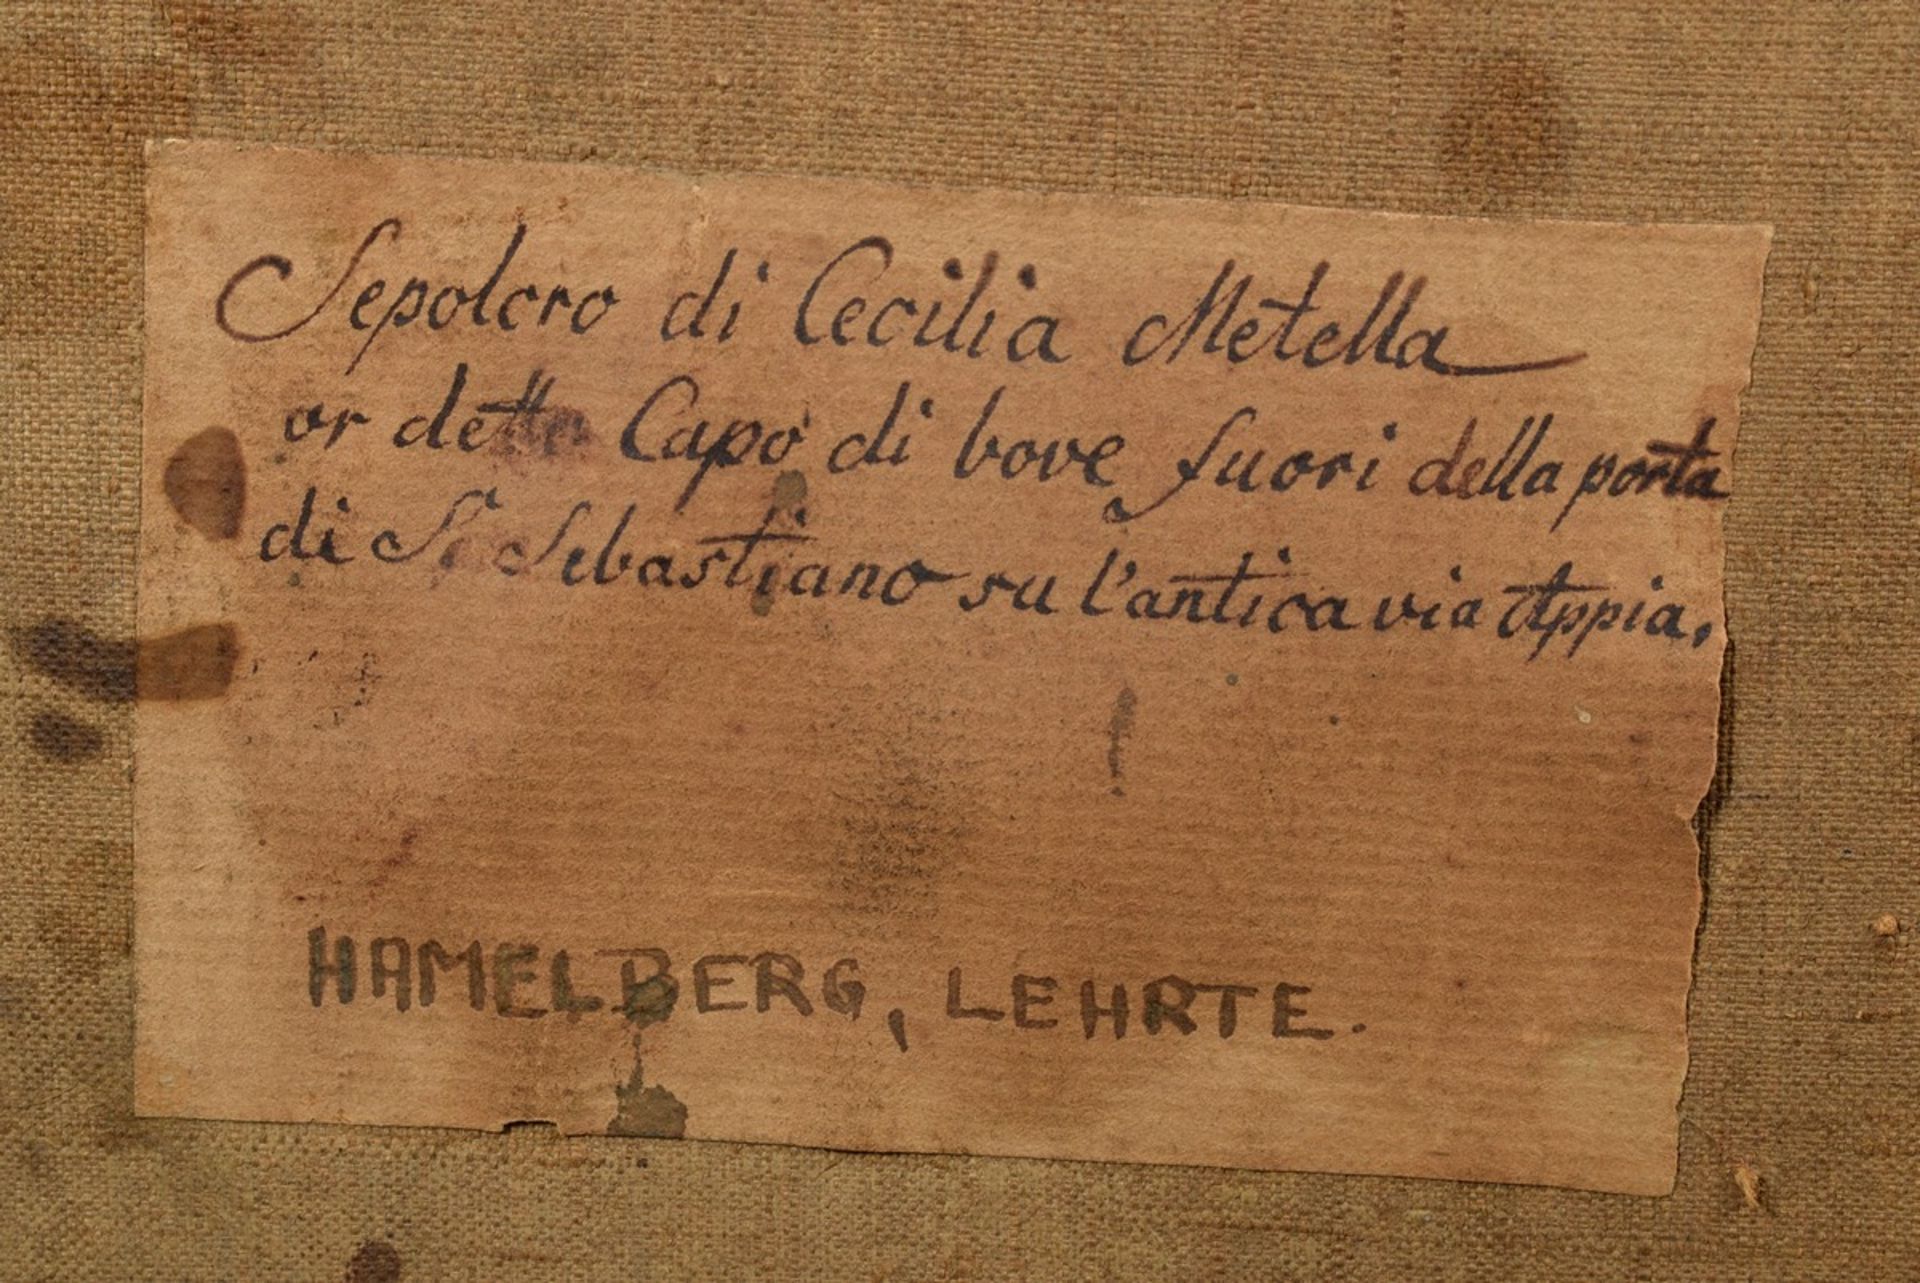 Sepolcro di Cecilia Metella
or detto Capo di bove fuori della porta
di S. Sebastiano su l'antica via Appia.
HAMELBERG, LEHRTE.